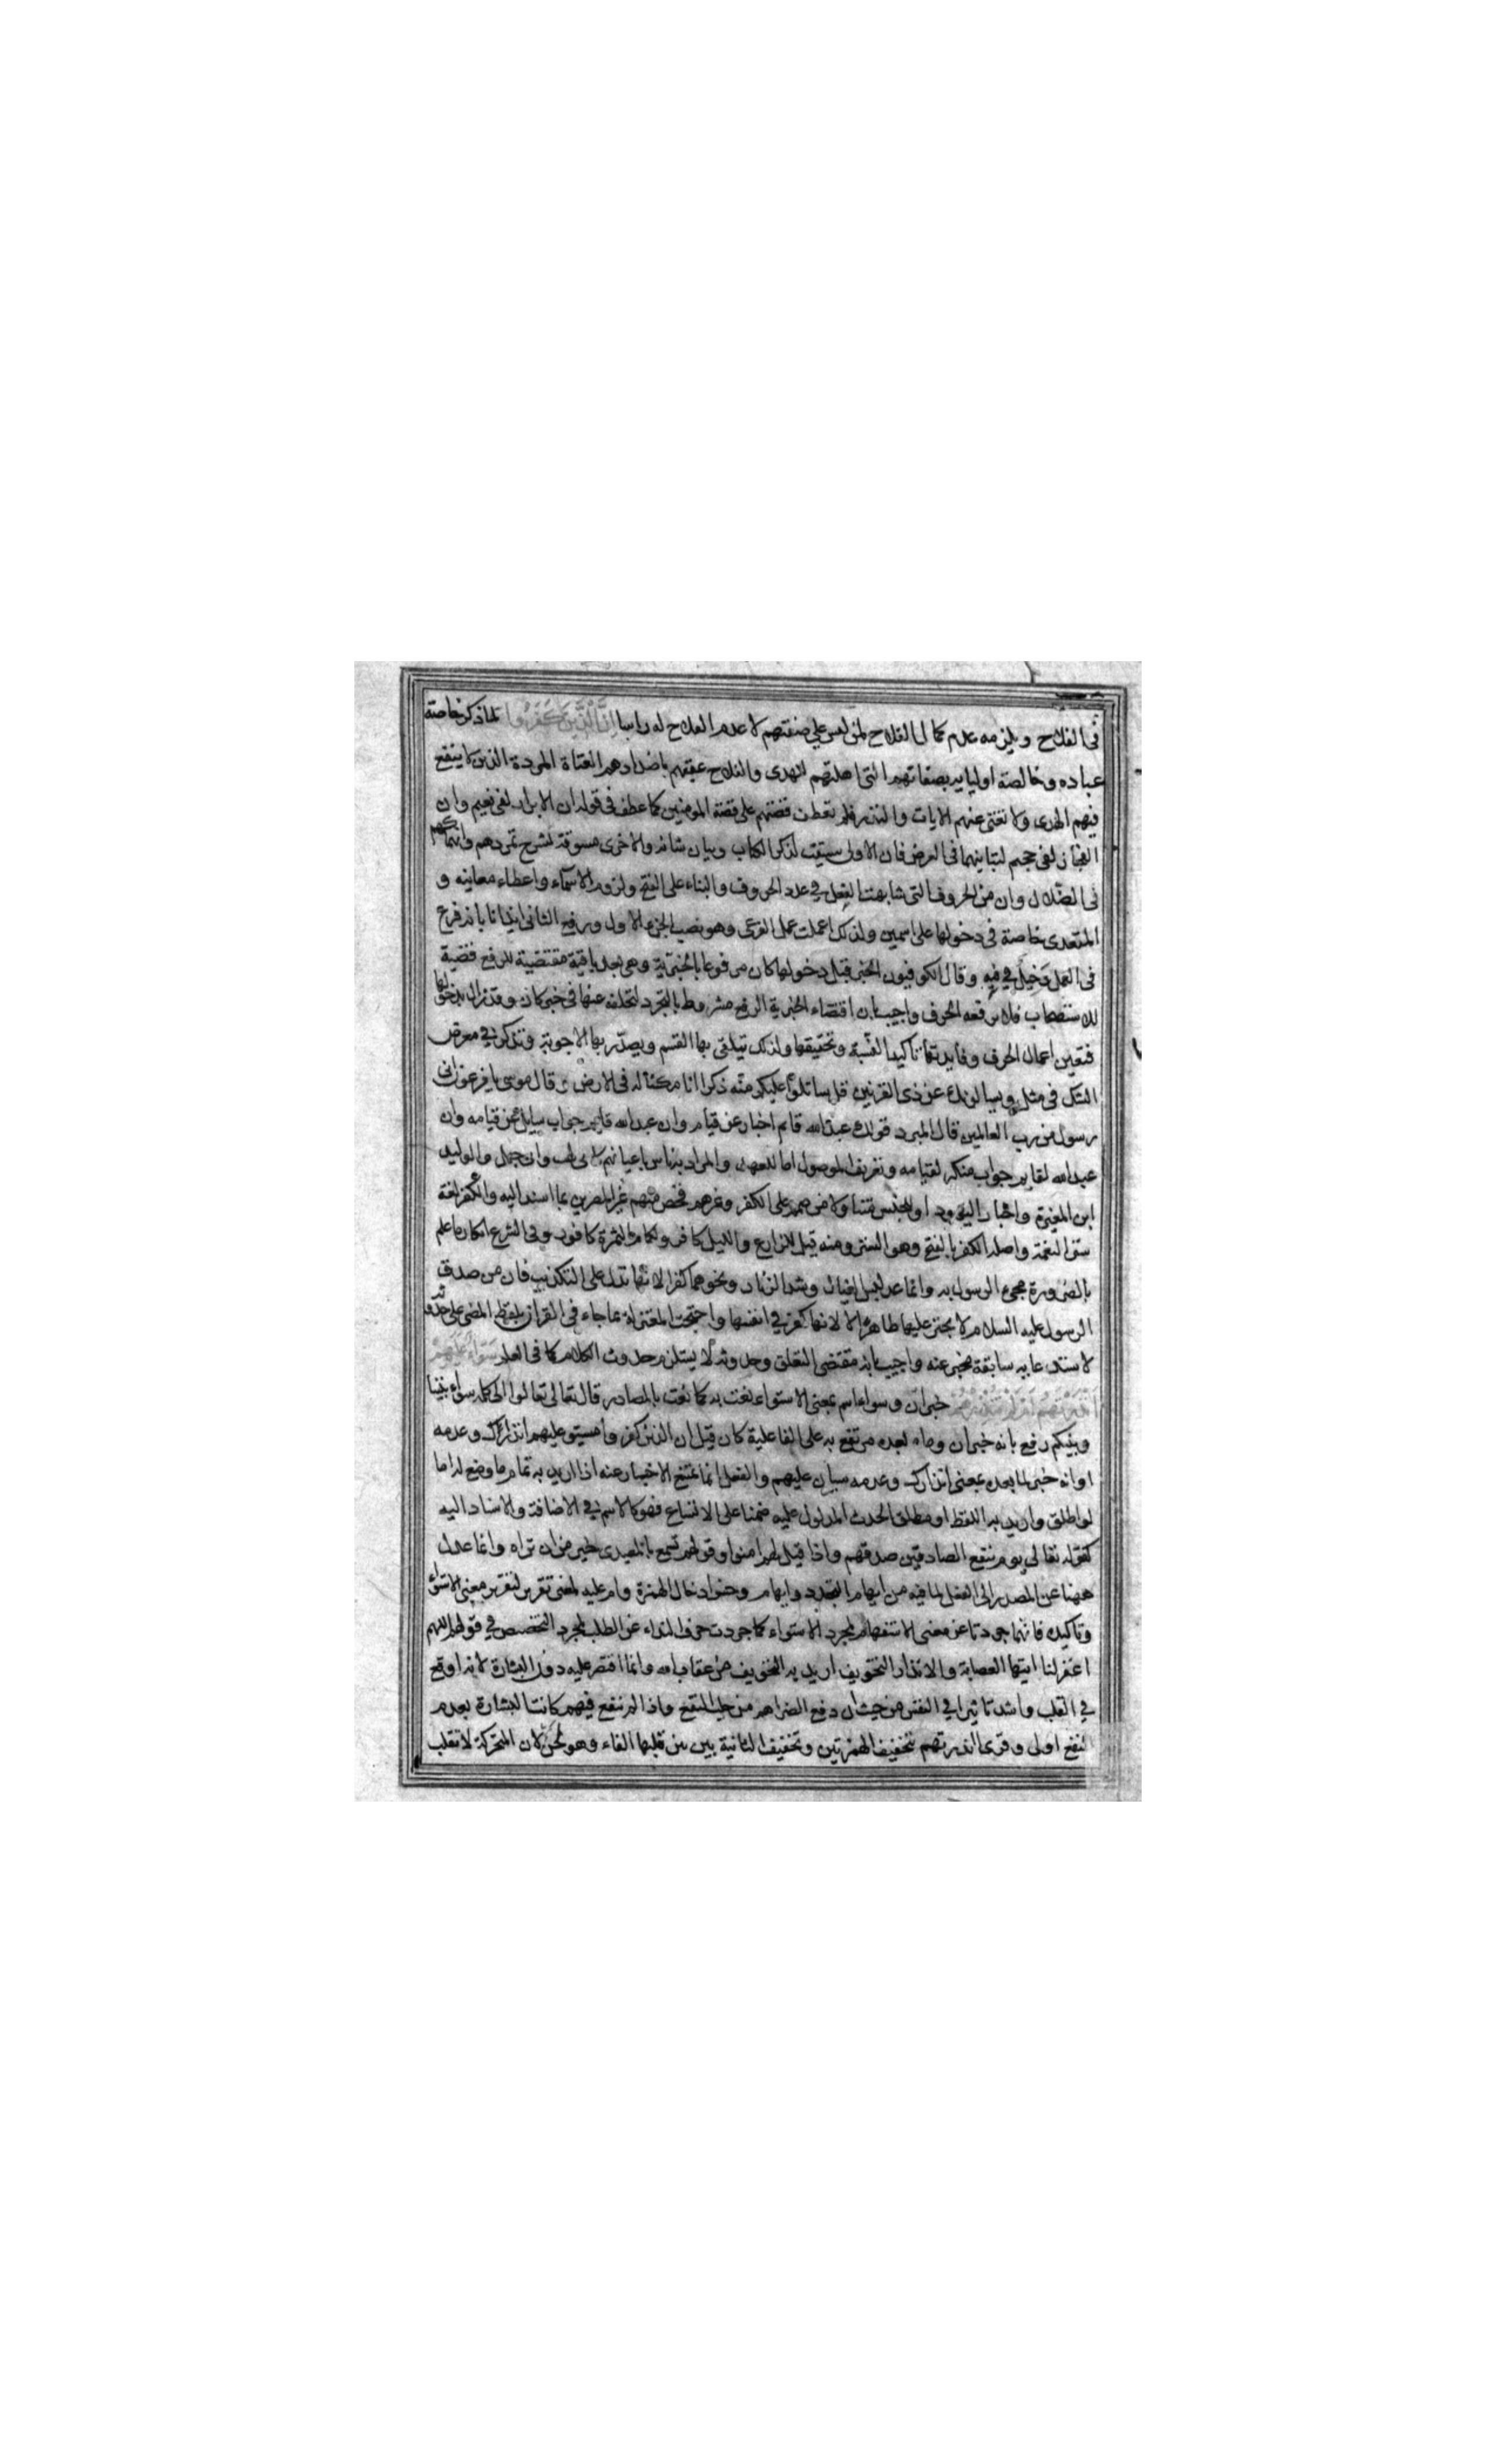 فى الفلاح ويلزمه عدم كمال الفلاح لمن ليس على صفتهم لا عدم الفلاح له راسا ان الذين كفروا لما ذكر خاصة
عباده وخالصة اوليايه بصفاتهم التى اهلتهم للهدى والفلاح عقبهم باضدادهم العتاة المردة الذين لا ينفع
فيهم الهدى ولا تغنى عنهم الايات والنذر فلم تعطف قصتهم على قصة المومنين كما عطف فى قوله ان الابرار لفى نعيم وان
الفجار لفى جحيم لتباينهما فى الغرض فان الاولى سيقت لذكر الكتاب وبيان شانه والاخرى مسوقة لشرح تمردهم وانهماكهم
فى الضلال وان من الحروف التى شابهت الفعل فى عدد الحروف والبناء على الفتح ولزوم الاسماء واعطاء معانيه و
المتعدى خاصة فى دخولها على اسمين ولذلك اعملت عمله الفرعى وهو نصب الجزء الاول ورفع الثانى ايذانا بانه فرع
فى العمل دخيل فيه وقال الكوفيون الخبر قبل دخولها كان مرفوعا بالخبرية وهى بعد باقية مقتضية للرفع قضية
للاستصحاب فلا يرفعه الحرف واجيب بان اقتضاء الخبرية الرفع مشروط بالتجرد لتخلفه عنها فى خبر كان وقد زال بدخولها
فتعين اعمال الحرف وفايدتها تاكيد النسبة وتحقيقها ولذلك يتلقى بها القسم ويصدر بها الاجوبة وتذكر فى معرض
الشك فى مثل ويسالونك عن ذى القرنين قل ساتلو عليكم منه ذكرا انا مكنا له فى الارض وقال موسى يا فرعون انى
رسول من رب العالمين قال المبرد قولك عبد الله قايم اخبار عن قيامه وان عبد الله قايم جواب سايل عن قيامه وان
عبد الله لقايم جواب منكر لقيامه وتعريف الموصول اما للعهد والمراد به ناس باعيانهم كابى لهب وابى جهل والوليد
ابن المغيرة واحبار اليهود او للجنس متناولا من صمم على الكفر وغيرهم فخص منهم غير المصرين بما اسند اليه والكفر لغة
ستر النعمة واصله الكفر بالفتح وهو الستر ومنه قيل للزارع والليل كافر ولكمام الثمرة كافور وفى الشرع انكار ما علم
بالضرورة مجىء الرسول به وانما عد لبس الغيار وشد الزنار ونحوهما كفرا لانها تدل على التكذيب فان من صدق
الرسول عليه السلام لا يجترى عليها ظاهرا لا لانها كفر فى انفسها واحتجت المعتزلة بما جاء فى القران بلفظ المضى على حدوثه
لاستدعايه سابقة مخبر عنه واجيب بانه مقتضى التعلق وحدوثه لا يستلزم حدوث الكلام كما فى العلم سواء عليهم
ءانذرتهم ام لم تنذرهم خبر ان وسواء اسم بمعنى الاستواء نعت به كما نعت بالمصادر قال تعالى تعالوا الى كلمة سواء بيننا
وبينكم رفع بانه خبر ان وما بعده مرتفع به على الفاعلية كان قيل ان الذين كفروا مستو عليهم انذارك وعدمه
او انه خبر لما بعده بمعنى انذارك وعدمه سيان عليهم والفعل انما يمتنع الاخبار عنه اذا اريد به تمام ما وضع له اما
لو اطلق واريد به اللفظ او مطلق الحدث المدلول عليه ضمنا على الاتساع فهو كالاسم فى الاضافة والاسناد اليه
كقوله تعالى يوم ينفع الصادقين صدقهم واذا قيل لهم امنوا وقولهم تسمع بالمعيدى خير من ان تراه وانما عدل
ههنا عن المصدر الى الفعل لما فيه من ايهام التجدد وحسن دخال الهمزة وام عليه لمعنى تقرير معنى الاستواء
وتاكيده فانهما جردتا عن معنى الاستفهام لمجرد الاستواء كما جردت حرف النداء عن الطلب لمجرد التخصيص فى قولهم اللهم
اغفر لنا ايتها العصابة والانذار التخويف اريد به التخويف من عقاب الله وانما اقتصر عليه دون البشارة لانه اوقع
فى القلب واشد تاثيرا فى النفس من حيث ان دفع الضر اهم من جلب النفع واذا لم ينفع فيهم كانت البشارة بعدم
النفع اولى وقرئ ءانذرتهم بتخفيف الهمزتين وتخفيف الثانية بين بين قلبها الفاء وهو لحن لان المتحركة لا تقلب